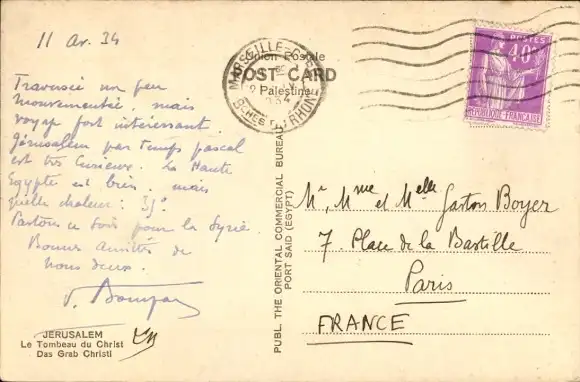 11 Av. 34
Traversée un peu
mouvementée, mais
voyage fort intéressant
Jérusalem par temps pascal
est très curieuse. La Haute
Egypte est bien, mais
quelle chaleur : 35°
Partons ce soir pour la Syrie
Bonnes amitiés de
nous deux.
JERUSALEM
Le Tombeau du Christ
Das Grab Christi
PUBL. THE ORIENTAL COMMERCIAL BUREAU
PORT SAID (EGYPT)
Union Postale
POST CARD
Palestine
MARSEILLE-GARE
BCHES DU RHONE
POSTES
40c
REPUBLIQUE FRANÇAISE
Mr, Mme et Melle Gaston Boyer
7. Place de la Bastille
Paris
FRANCE